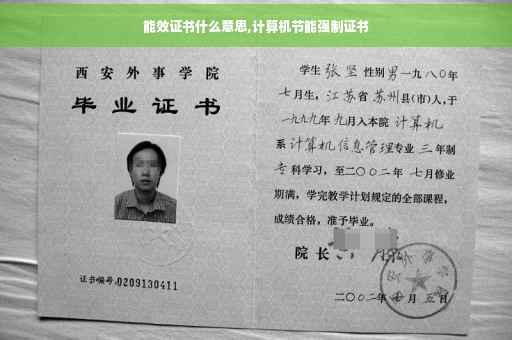 能效证书什么意思,计算机节能强制证书
西安外事学院
毕业证书
证书编号:0209130411
学生 张坚 性别 男 一九八〇年
七月生，江苏省 苏州县(市)人,于
一九九九年九月入本院 计算机
系 计算机信息管理专业 三 年制
专科学习，至二〇〇二年 七月修业
期满，学完教学计划规定的全部课程，
成绩合格，准予毕业。
院长
二〇〇二年 月五日